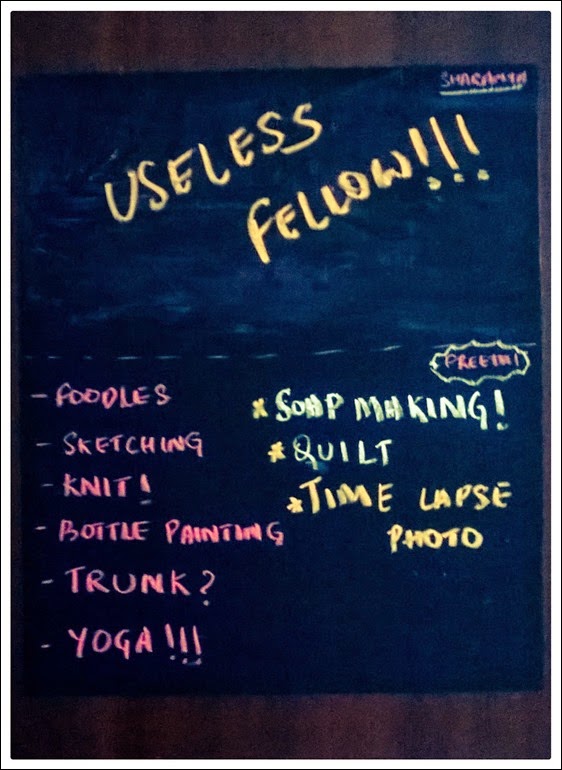 SHARAMYA
USELESS
FELLOW!!!
PREETHI
- FOODLES
- SKETCHING
- KNIT!
- BOTTLE PAINTING
- TRUNK?
- YOGA!!!
* SOAP MAKING!
* QUILT
* TIME LAPSE
PHOTO